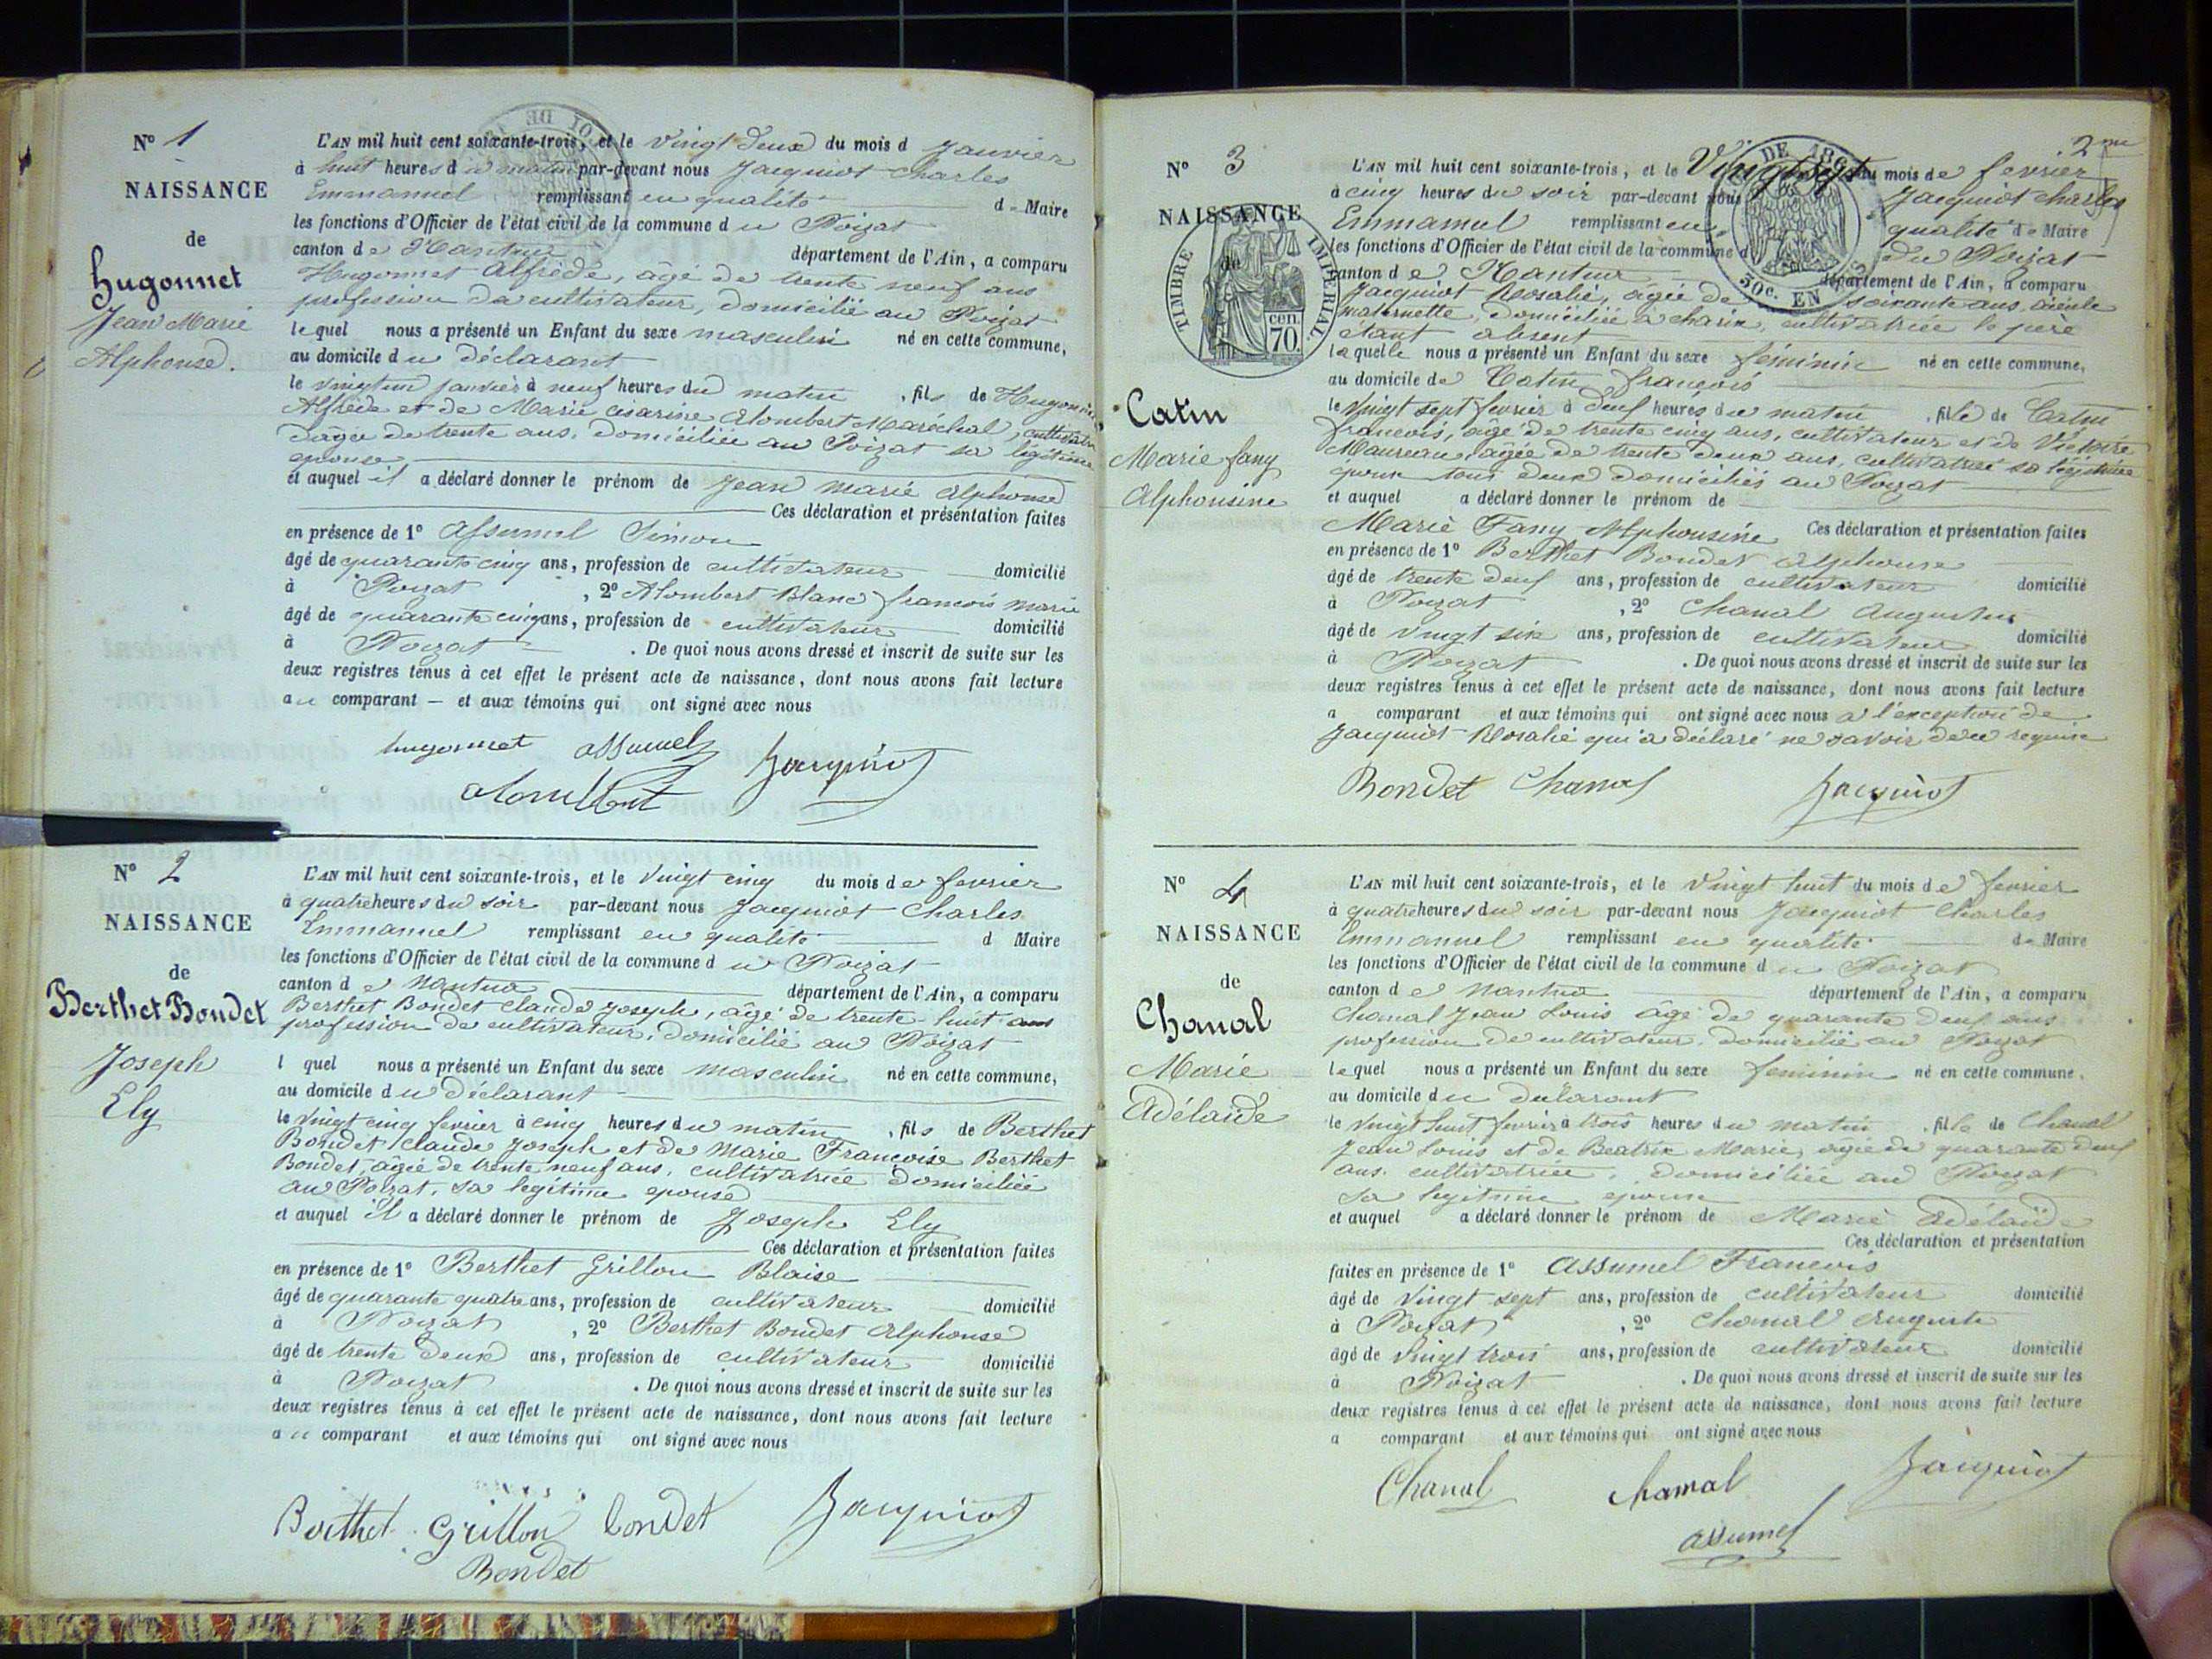 N° 1
NAISSANCE
de
Hugonnet
Jean Marie
Alphonse.
L'AN mil huit cent soixante-trois, et le vingt deux du mois d Janvier
à huit heures d u matin par-devant nous Jacquiot Charles
Emmanuel remplissant en qualité d e Maire
les fonctions d'Officier de l'état civil de la commune d u Poizat
canton d e Nantua département de l'Ain, a comparu
Hugonnet Alfrède, âgé de trente neuf ans
profession de cultivateur, domicilié au Poizat
le quel nous a présenté un Enfant du sexe masculin né en cette commune,
au domicile d u déclarant
le vingt un janvier à neuf heures du matin , fils de Hugonnet
Alfrède et de Marie Césarine Alombert Maréchal, cultivatrice
âgée de trente ans, domiciliée au Poizat sa légitime
epouse
et auquel il a déclaré donner le prénom de Jean Marie Alphonse
Ces déclaration et présentation faites
en présence de 1° Assumel Simon
âgé de quarante cinq ans, profession de cultivateur domicilié
à Poizat , 2° Alombert Blanc françois Marie
âgé de quarante cinq ans, profession de cultivateur domicilié
à Poizat . De quoi nous avons dressé et inscrit de suite sur les
deux registres tenus à cet effet le présent acte de naissance, dont nous avons fait lecture
a u comparant — et aux témoins qui ont signé avec nous
hugonnet assumel Jacquiot
alombert
N° 2
NAISSANCE
de
Berthet Bondet
Joseph
Ely
L'AN mil huit cent soixante-trois, et le vingt cinq du mois d e fevrier
à quatre heures du soir par-devant nous Jacquiot Charles
Emmanuel remplissant en qualité d Maire
les fonctions d'Officier de l'état civil de la commune d u Poizat
canton d e Nantua département de l'Ain, a comparu
Berthet Bondet Claude Joseph, âgé de trente huit ans
profession de cultivateur, domicilié au Poizat
l quel nous a présenté un Enfant du sexe masculin né en cette commune,
au domicile d u déclarant
le vingt cinq fevrier à cinq heures du matin , fils de Berthet
Bondet Claude Joseph et de Marie Françoise Berthet
Bondet, âgée de trente neuf ans, cultivatrice domiciliée
au Poizat, sa legitime epouse
et auquel il a déclaré donner le prénom de Joseph Ely
Ces déclaration et présentation faites
en présence de 1° Berthet Grillon Blaise
âgé de quarante quatre ans, profession de cultivateur domicilié
à Poizat , 2° Berthet Bondet Alphonse
âgé de trente deux ans, profession de cultivateur domicilié
à Poizat . De quoi nous avons dressé et inscrit de suite sur les
deux registres tenus à cet effet le présent acte de naissance, dont nous avons fait lecture
a u comparant et aux témoins qui ont signé avec nous
Berthet Grillon bondet Jacquiot
Bondet
2me
N° 3
NAISSANCE
de
TIMBRE IMPÉRIAL
cen. 70.
DE 186
50c. EN
Catin
Marie fany
Alphonsine
L'AN mil huit cent soixante-trois, et le Vingt sept du mois de fevrier
à cinq heures du soir par-devant nous Jacquiot Charles
Emmanuel remplissant en qualité de Maire
les fonctions d'Officier de l'état civil de la commune d du Poizat
canton d e Nantua département de l'Ain, a comparu
Jacquiot Rosalie, âgée de soixante ans, aieule
maternelle, domiciliée à charix, cultivatrice le père
étant absent
la quelle nous a présenté un Enfant du sexe féminin né en cette commune,
au domicile de Catin françois
le vingt sept fevrier à deuf heures du matin , fille de Catin
francois, âgé de trente cinq ans, cultivateur et de Victoire
Maureau, âgée de trente deux ans, cultivatrice sa légitime
epouse tous deux domiciliés au Poizat
et auquel a déclaré donner le prénom de
Marie Fany Alphonsine Ces déclaration et présentation faites
en présence de 1° Berthet Bondet Alphonse
âgé de trente deuf ans, profession de cultivateur domicilié
à Poizat , 2° Chanal Augustin
âgé de vingt six ans, profession de cultivateur domicilié
à Poizat . De quoi nous avons dressé et inscrit de suite sur les
deux registres tenus à cet effet le présent acte de naissance, dont nous avons fait lecture
a comparant et aux témoins qui ont signé avec nous a l'exception de
Jacquiot Rosalie qui a déclaré ne savoir de ce requise
Bondet Chanal Jacquiot
N° 4
NAISSANCE
de
Chanal
Marie
Adélaïde
L'AN mil huit cent soixante-trois, et le vingt huit du mois d e fevrier
à quatre heures du soir par-devant nous Jacquiot Charles
Emmanuel remplissant en qualité de Maire
les fonctions d'Officier de l'état civil de la commune d u Poizat
canton d e Nantua département de l'Ain, a comparu
Chanal Jean Louis âgé de quarante deuf ans
profession de cultivateur, domicilié au Poizat
le quel nous a présenté un Enfant du sexe feminin né en cette commune,
au domicile du déclarant
le vingt huit fevrier à trois heures du matin , fille de Chanal
Jean Louis et de Beatrix Marie, agée de quarante deuf
ans, cultivatrice, domiciliée au Poizat
sa legitime epouse
et auquel a déclaré donner le prénom de Marie Adélaïde
Ces déclaration et présentation
faites en présence de 1° Assumel François
âgé de vingt sept ans, profession de cultivateur domicilié
à Poizat , 2° Chanal Auguste
âgé de vingt trois ans, profession de cultivateur domicilié
à Poizat . De quoi nous avons dressé et inscrit de suite sur les
deux registres tenus à cet effet le présent acte de naissance, dont nous avons fait lecture
a comparant et aux témoins qui ont signé avec nous
Chanal chanal Jacquiot
assumel